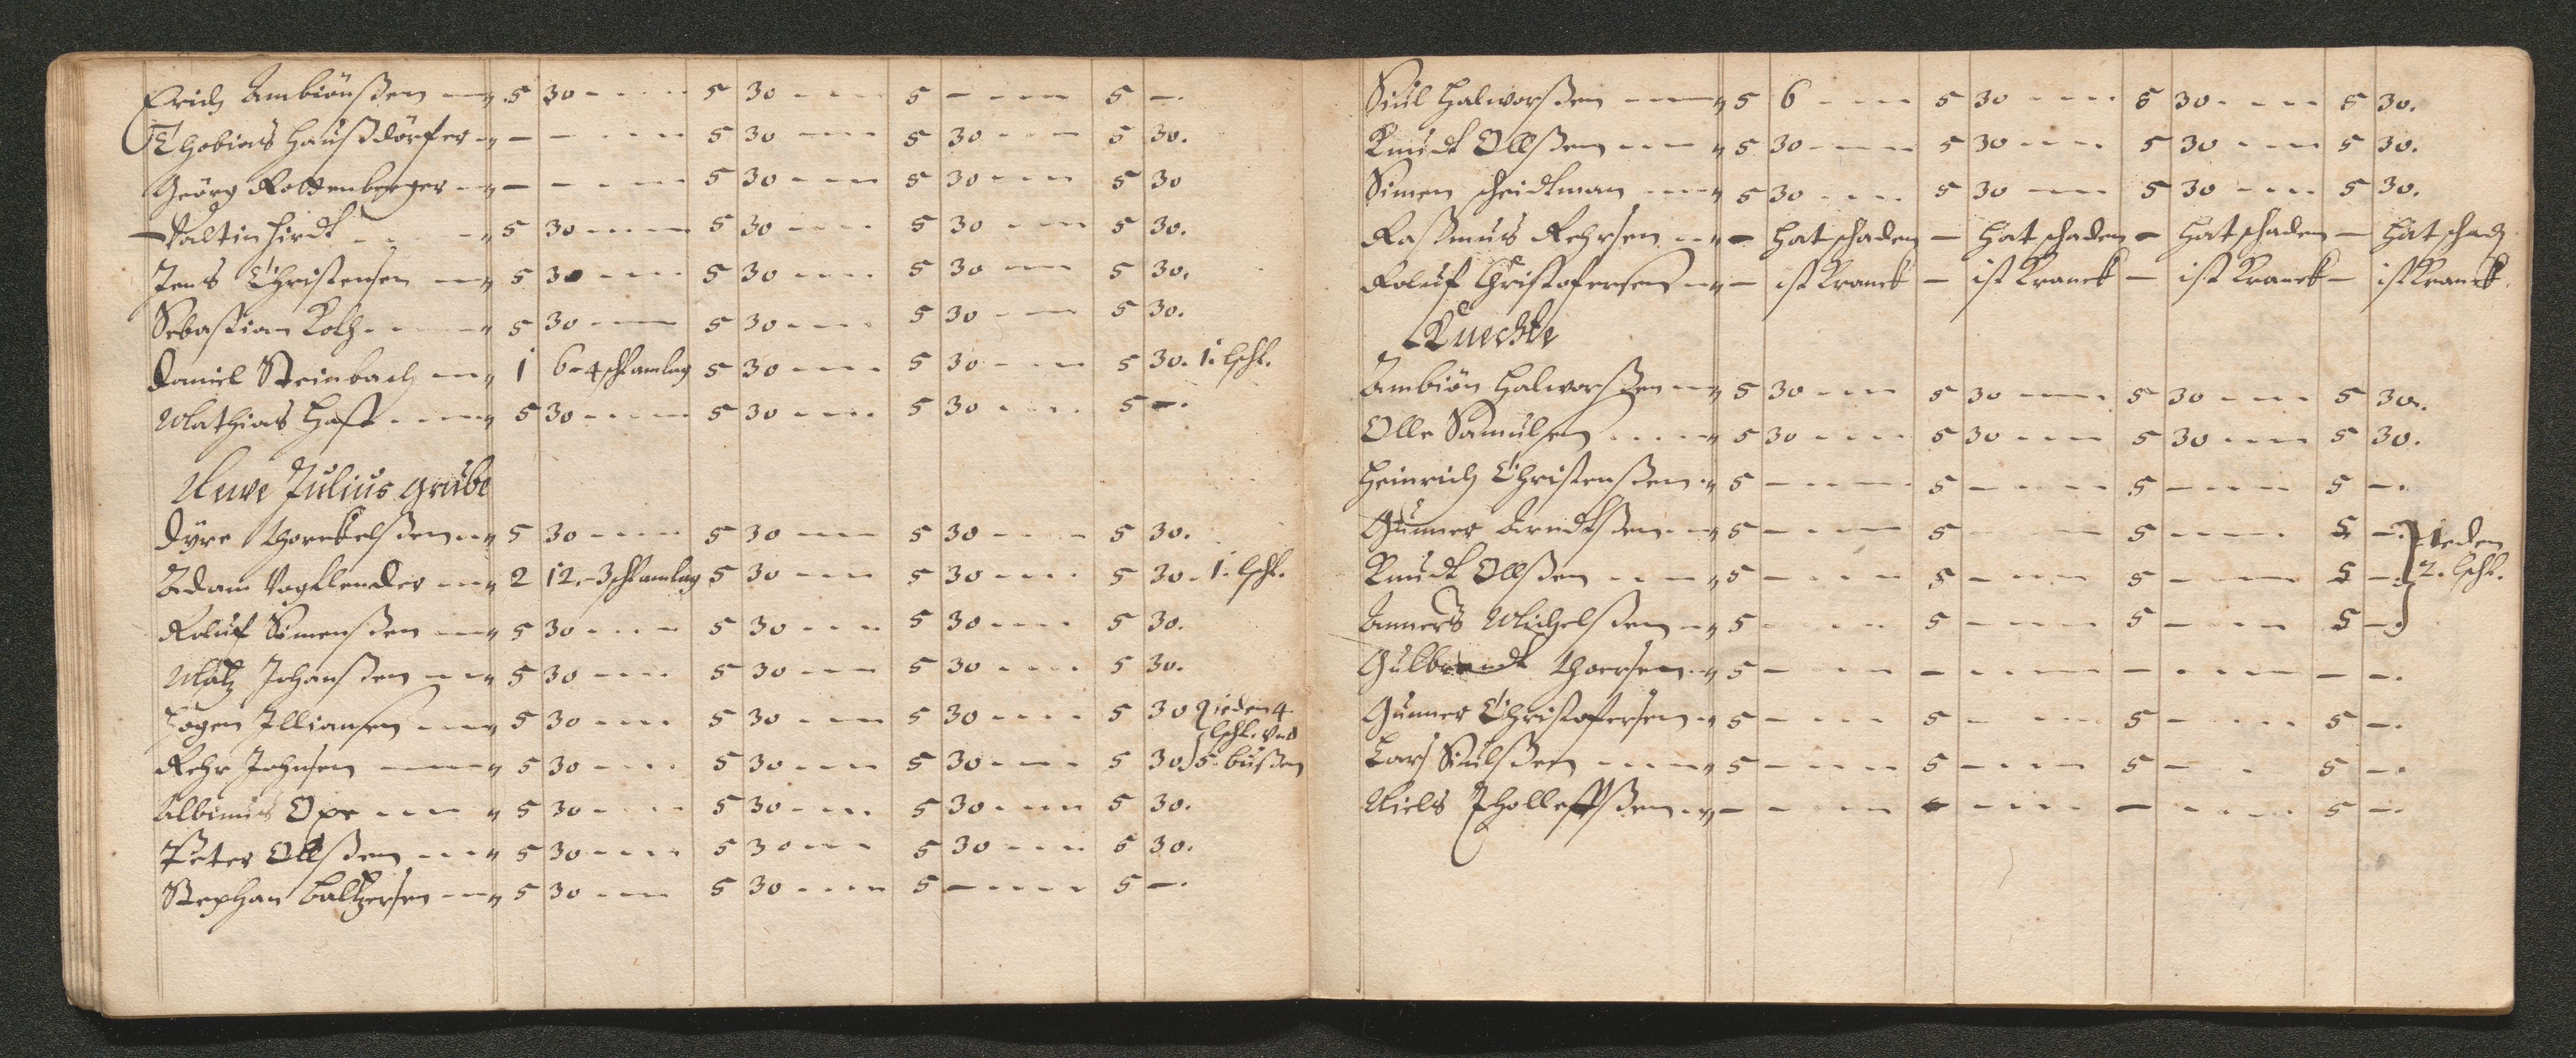 Erich Ambiönßen --- " 5 30 - - - - 5 30 - - - 5 - - - - 5 -.
Thobias Haußdörfer - " - - - - - 5 30 - - - 5 30 - - - 5 30.
Geörg Rottenberger - " - - - - - 5 30 - - - 5 30 - - - 5 30
Valtin Hirdt - - - " 5 30 - - - - 5 30 - - - 5 30 - - - 5 30.
Jens Christensen - - " 5 30 - - - - 5 30 - - - 5 30 - - - 5 30.
Sebastian Koch - - - " 5 30 - - - 5 30 - - - 5 30 - - - 5 30.
Daniel Steinbach - - " 1 6 - 4 sch 5 30 - - - 5 30 - - - 5 30. 1. lschl.
Mathias Hast - - - " 5 30 - - - - 5 30 - - - 5 30 - - - 5 -.
Newe Julius grube
Dÿre Thorckelßen - - " 5 30 - - - - 5 30 - - - 5 30 - - - 5 30.
Adam Vogtlender - - " 2 12. - 3 sch 5 30 - - - 5 30 - - - 5 30. 1. lschl.
Roluf Simenßen - - " 5 30 - - - - 5 30 - - - 5 30 - - - 5 30.
Matz Johanßen - - " 5 30 - - - - 5 30 - - - 5 30 - - - 5 30.
Hogen Illiansen - - " 5 30 - - - - 5 30 - - - 5 30 - - - 5 30 } ieden 4
lschl. vnd
Rehr Johnsen - - - " 5 30 - - - - 5 30 - - - 5 30 - - - 5 30 } 5. bußen
Albinus Ope - - - " 5 30 - - - - 5 30 - - - 5 30 - - - 5 30.
Peter Ollßen - - - " 5 30 - - - - 5 30 - - - 5 30 - - - 5 30.
Stephan Baltzersen - - " 5 30 - - - 5 30 - - - 5 - - - - 5 -.
Siul Halworßen - - - " 5 6 - - - 5 30 - - - 5 30 - - - 5 30.
Knudt Ollßen - - - " 5 30 - - - 5 30 - - - 5 30 - - - 5 30.
Simen Scheidtman - - " 5 30 - - - 5 30 - - - 5 30 - - - 5 30.
Raßmus Rehrsen - - " - hat schaden - hat schaden - hat schaden - hat schad
Roluf Christofersen - " - ist kranck - ist kranck - ist kranck - ist kranck.
Knechte
Ambiön Halworßen - - " 5 30 - - - 5 30 - - - 5 30 - - - 5 30.
Olle Samulsen - - - " 5 30 - - - 5 30 - - - 5 30 - - - 5 30.
Heinrich Christenßen - " 5 - - - - 5 - - - - 5 - - - - 5 -.
Gunner Arndtßen - - " 5 - - - - 5 - - - - 5 - - - - 5 -. } ieden
Knudt Ollßen - - - " 5 - - - - 5 - - - - 5 - - - - 5 -. } 2. lschl.
Anners Michelßen - - " 5 - - - - 5 - - - - 5 - - - - 5 -. }
Gulbrandt Thoersen - " 5 - - - - - - - - - - - - - - - -.
Gunner Christofersen - " 5 - - - - 5 - - - - 5 - - - - 5 -.
Lars Siulßen - - - " 5 - - - - 5 - - - - 5 - - - 5 -.
Niels Thollefßen - - " - - - - - - - - - - - - - - - 5 -.